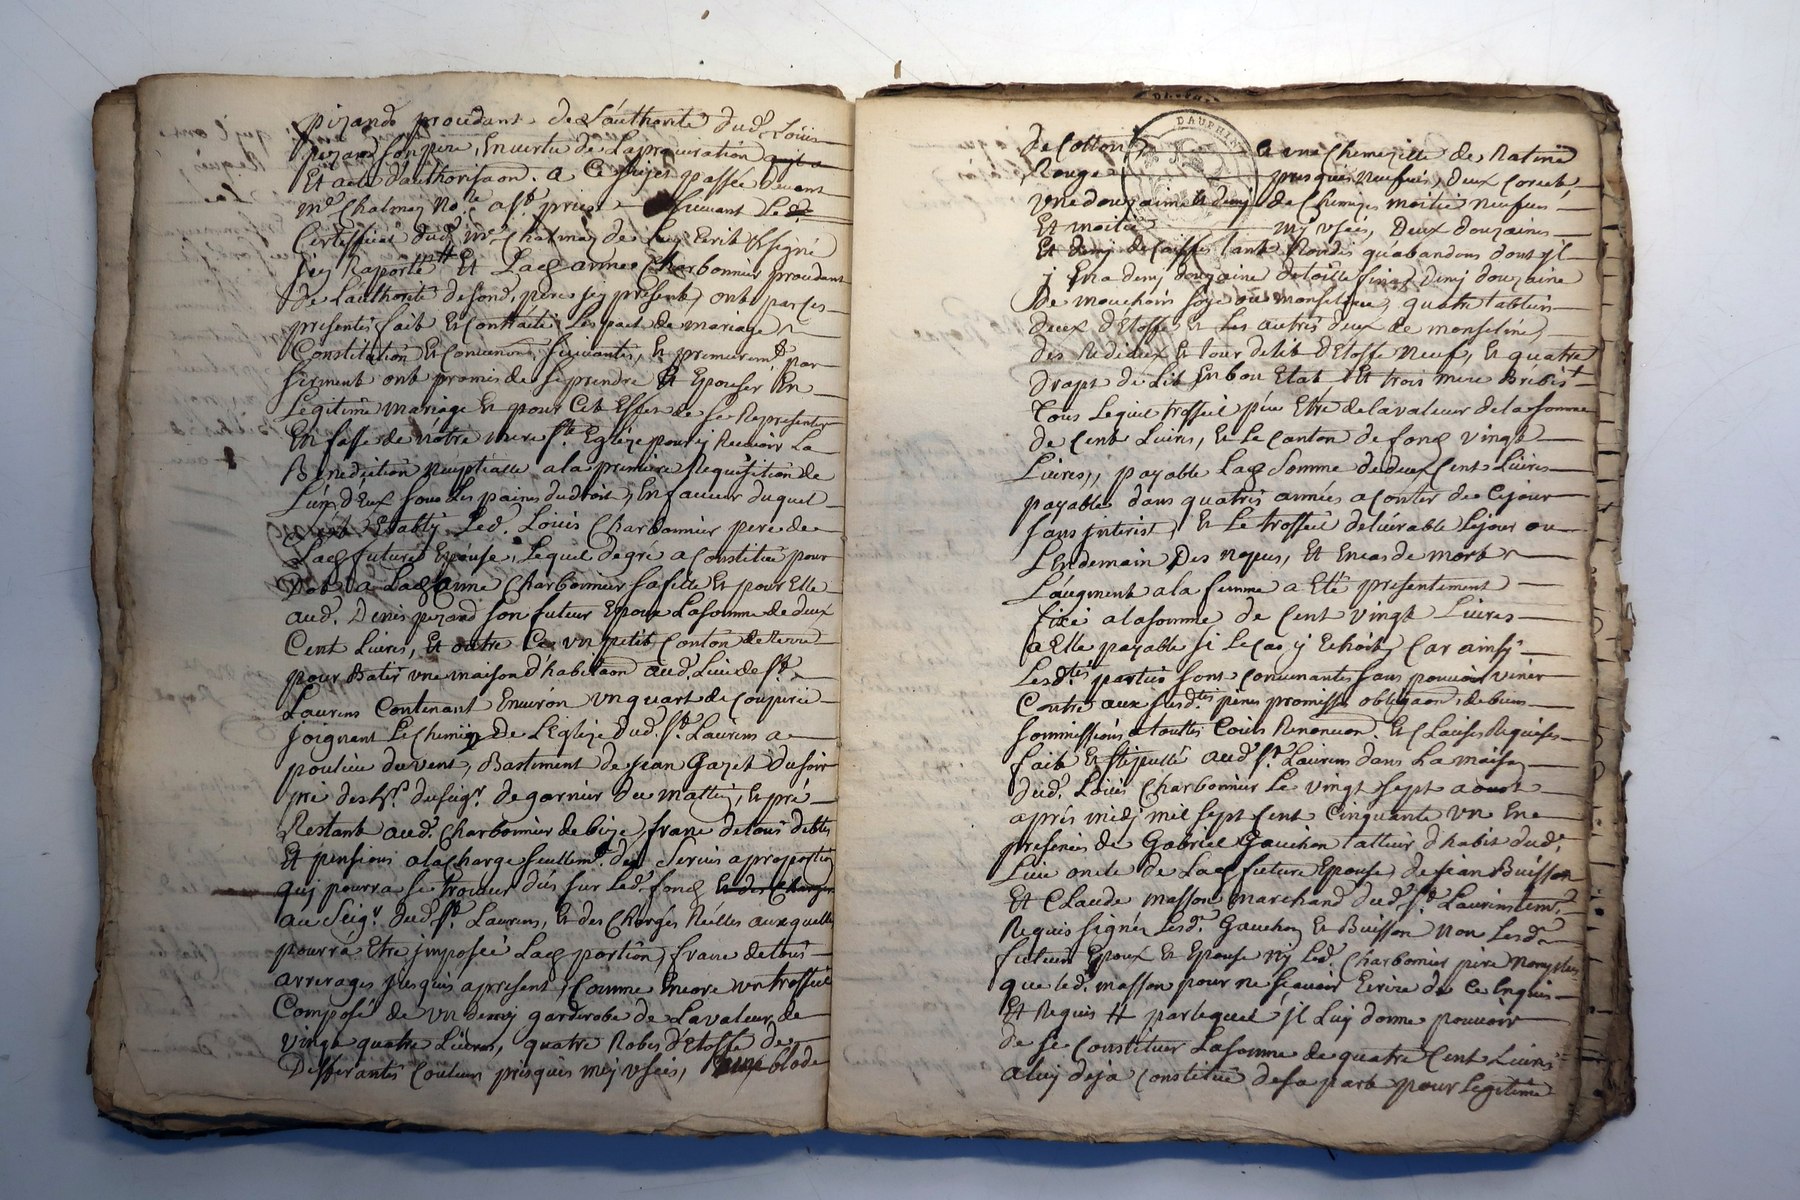 pizand procedant de Lauthorité dud. Louis
pizand son pere, En vertu de La procuration
Et acte d'authorisaon. a Ce sujet passée devant
me. Chalmas No.re suivant Led.
Certifficat dud. me. Chalmas de Luy Ecrit & signé
jcy Raporté Et Lad. anne Charbonnier procedant
de L'authorité de sond. pere jcy present, ont par ces
presentes fait Et Contracté Les pact de mariage
Constitution Et Convenances suivantes, Et premierem.t par
serment ont promis de se prendre Et Epouser En
Legitime mariage Et pour Cet Effet de se Representer
En fasse de nôtre mere s.te Eglize pour y Recevoir La
Benediction Nuptialle a la premiere Requisition de
L'un d'Eux sous Les paines du droit, En faveur duquel
Etably Led. Louis Charbonnier pere de
Lad. future Epouse, Lequel de gré a Constitué pour
dot a Lad. anne Charbonnier sa fille Et pour Elle
aud. Denis pizand son futeur Epoux La somme de deux
Cent Livres, Et outre Ce un petit Canton de terre
pour Batir une maison d'habitaon aud. Lieu de s.t
Laurens Contenant Environ un quart de Couperée
joignant Le Chemin de L'Eglize dud. s.t Laurens a
du vent, Bastiment de jean Gazet du soir
pré des h.rs du seig.r de garnier du mattin, Et pré
Restant aud. Charbonnier de bize, franc de tous debtes
Et pensions a la Charge seullem.t des Servis a proportion
quj pourra se trouver dûs sur Led. fond Et des Charges
au Seig.r dud. s.t Laurens, Et des Charges Réelles auxquelles
pourra Etre jmposée Lad. portion, franc de tous
arrerages jusques a present, Comme Encore un trossel
Composé de un demy garderobe de La valeur de
vingt quatre Livres, quatre Robes d'Etoffe de
Differantes Couleurs presques my usées,
de Cotton Et une Chemizille de Ratine
Rouge presques Neufves, deux Corcets,
une douzaine Et demj de Chemizes moitié Neufves
Et moitié mj usées, Deux douzaines
Et demj de Coiffes tant Rondes qu'abandons dont jl
j En a demj douzaine de toille fine, Demj douzaine
De mouchoirs soye ou monseline, quatre tabliers
deux d'Etoffe Et Les autres deux de monseline,
des Rideaux Et tour de lit d'Etoffe Neuf, Et quatre
draps de Lit En bon Etat Et trois mere Brebis
Tous Lequel trossel peu Etre de la valeur de la somme
de Cent Livres, Et Le Canton de fond vingt
Livres, payable Lad. Somme de deux Cent Livres
payable dans quatres années a Conter de Cejour
sans jnterist, Et Le trossel delivrable Le jour ou
Lendemain Des nopces, Et En cas de mort
L'augment a la femme a Eté presentement
fixé a la somme de Cent vingt Livres
a Elle payable si Le Cas y Echoit, Car ainsy
Lesd.tes parties sont Convenantes sans pouvoir venir
Contre aux susd.tes peines promisses obligaons de biens
sommissions a touttes Cours Renonciaon. Et Clauses Requises
fait Et stipullé aud. s.t Laurens dans La maison
dud. Louis Charbonnier Le vingt sept aoust
après midj mil sept Cent Cinquante un En
presences de Gabriel Gauchon tallieur d'habit dud.
Lieu oncle de Lad. future Epouse, de jean Buisson
Et Claude masson marchand dud. s.t Laurens tem.
Requis signés Lesd. Gauchon Et Buisson Non Lesd.
futeurs Epoux Et Epouse nj Led. Charbonnier pere Non plus
que led. masson pour ne scavoir Ecrire de Ce Enquis
Et Requis # par lequel jl Luy donne pouvoir
de se Constituer La somme de quatre Cent Livres
a luy deja Constitué de sa part pour Legitime
DAUPHIN